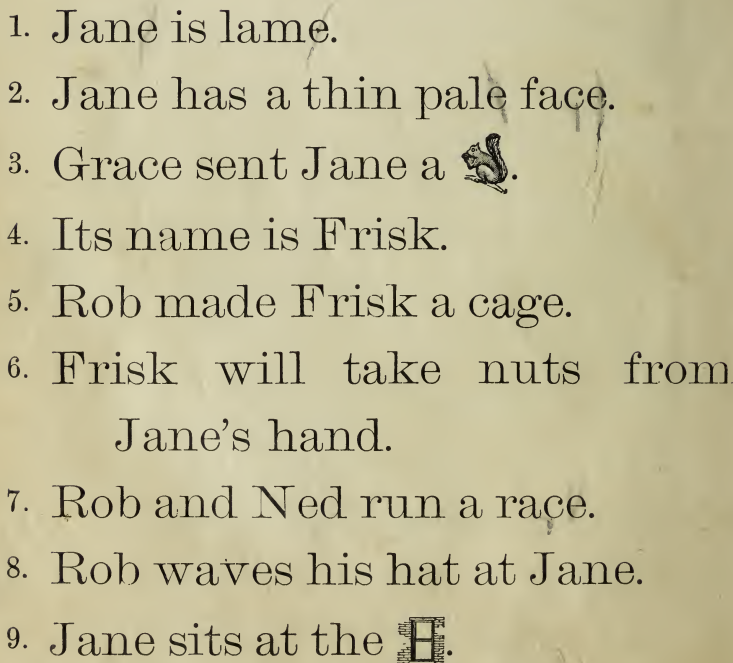 1. Jane is lame.
2. Jane has a thin pale face.
3. Grace sent Jane a .
4. Its name is Frisk.
5. Rob made Frisk a cage.
6. Frisk will take nuts from
Jane's hand.
7. Rob and Ned run a race.
8. Rob waves his hat at Jane.
9. Jane sits at the .